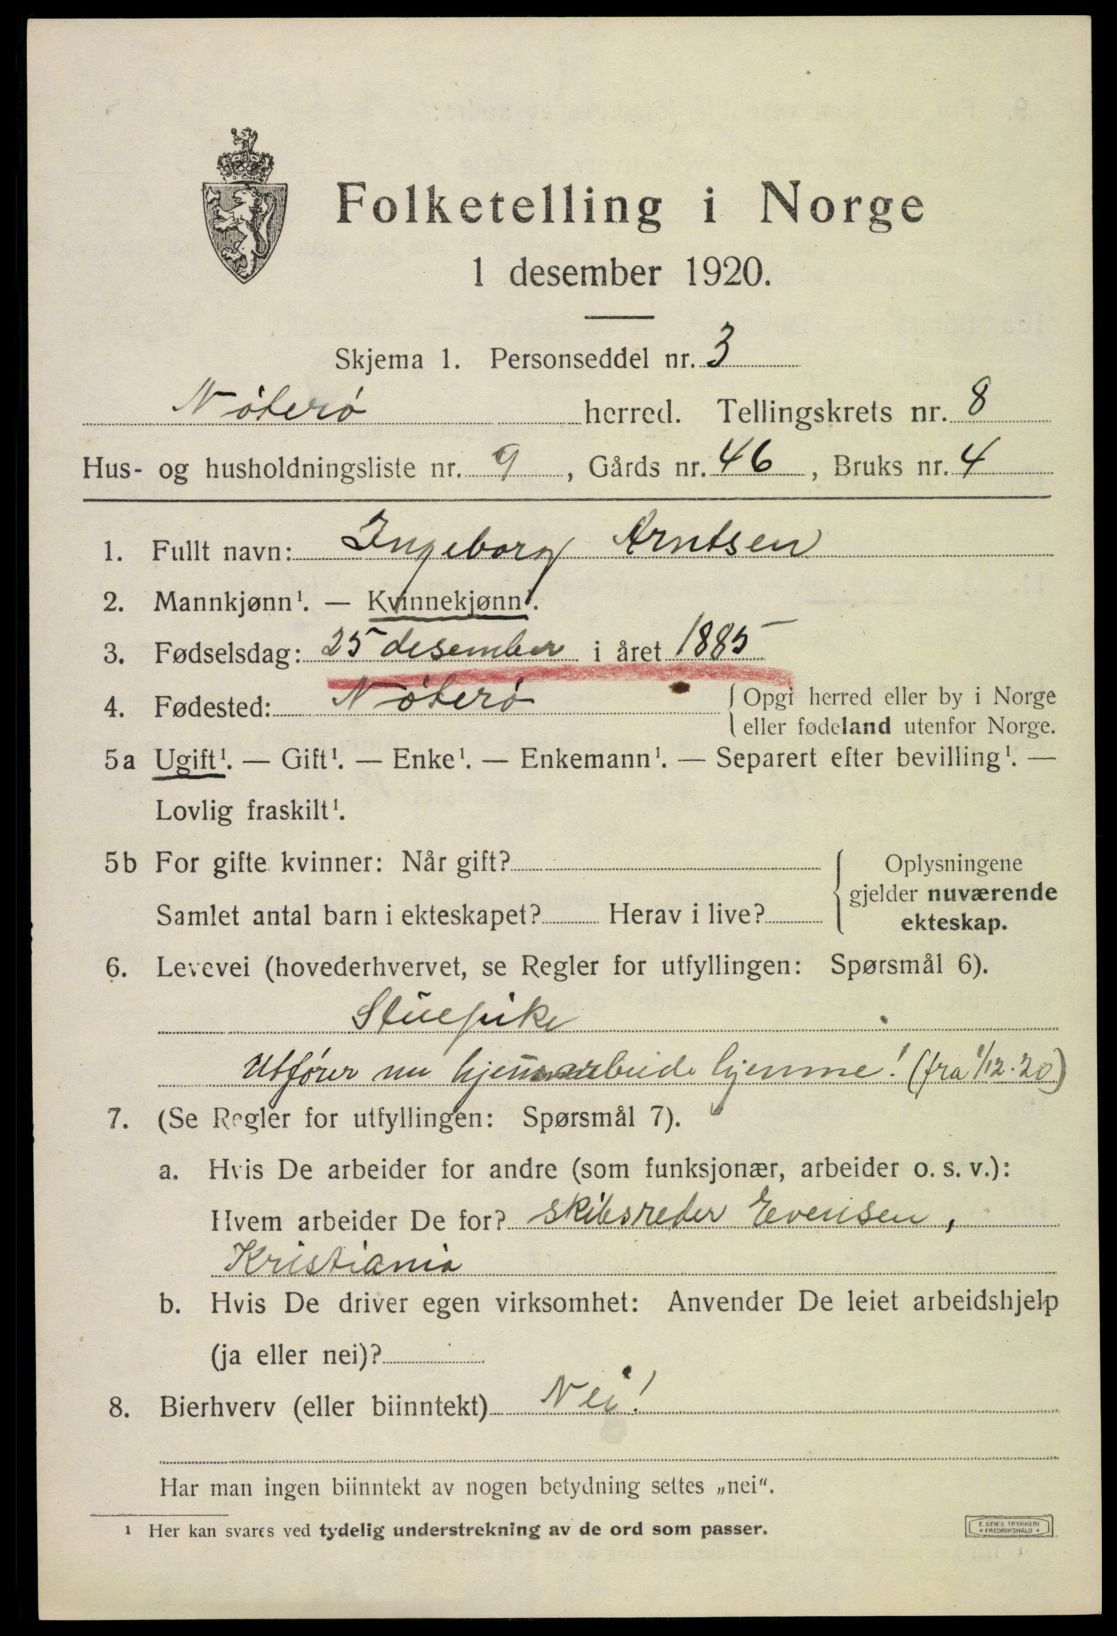 Folketelling i Norge
1 desember 1920.
Skjema 1. Personseddel nr. 3
Nøterø herred. Tellingskrets nr. 8
Hus- og husholdningsliste nr. 9, Gårds nr. 46, Bruks nr. 4
1. Fullt navn: Ingeborg Arntsen
2. Mannkjønn¹. — Kvinnekjønn¹.
3. Fødselsdag: 25 desember i året 1885
4. Fødested: Nøterø { Opgi herred eller by i Norge
eller fødeland utenfor Norge.
5a Ugift¹. — Gift¹. — Enke¹. — Enkemann¹. — Separert efter bevilling¹. —
Lovlig fraskilt¹.
5b For gifte kvinner: Når gift?
Samlet antal barn i ekteskapet? Herav i live?
{ Oplysningene
gjelder nuværende
ekteskap.
6. Levevei (hovederhvervet, se Regler for utfyllingen: Spørsmål 6).
Stuepike
Utfører nu hjemmarbeide hjemme! (fra 1/12-20)
7. (Se Regler for utfyllingen: Spørsmål 7).
a. Hvis De arbeider for andre (som funksjonær, arbeider o. s. v.):
Hvem arbeider De for? Skibsreder Evensen,
Kristiania
b. Hvis De driver egen virksomhet: Anvender De leiet arbeidshjelp
(ja eller nei)?
8. Bierhverv (eller biinntekt) Nei!
Har man ingen biinntekt av nogen betydning settes „nei“.
¹ Her kan svares ved tydelig understrekning av de ord som passer.
E. SEM'S TRYKKERI
• FREDRIKSHALD •